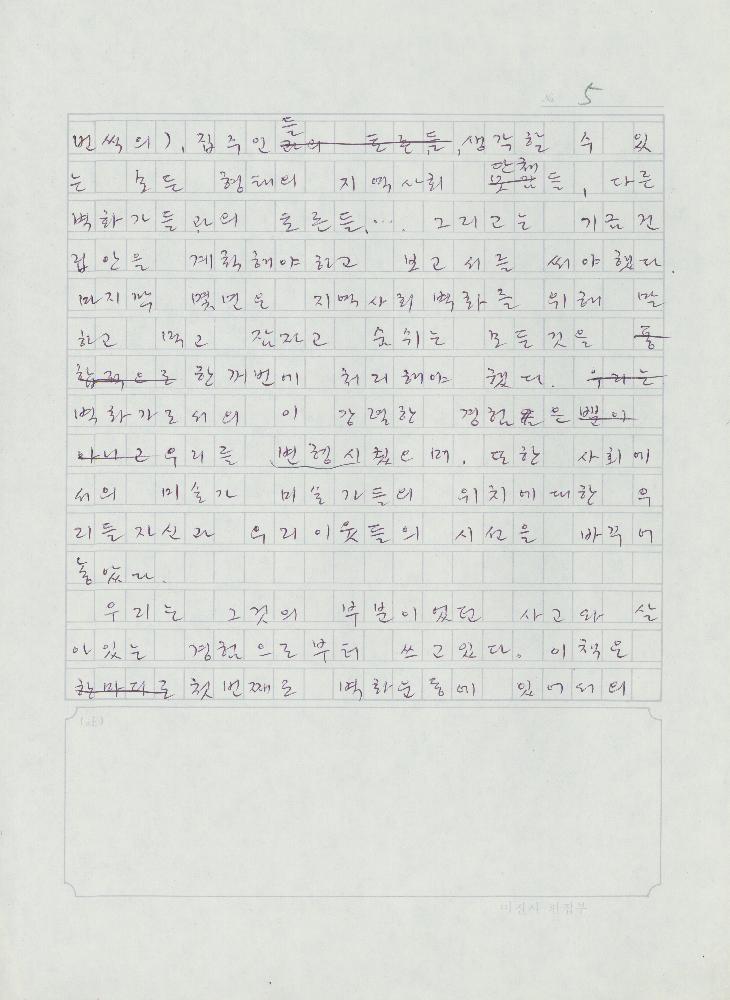 No 5
번씩의), 집주인들과의 토론들, 생각할 수 있
는 모든 형태의 지역사회 단체들, 다른
벽화가들과의 토론들, …. 그리고는 기금건
립안을 계획해야 하고 보고서를 써야했다.
마지막 몇면은 지역사회 벽화를 위해 말
하고 먹고 잠자고 숨쉬는 모든것을 통
합적으로 한꺼번에 처리해야 했다. 우리는
벽화가로서의 이 강렬한 경험은 뿐이
아니고 우리를 변형시켰으며, 또한 사회에
서의 미술가 미술가들의 위치에 대한 우
리들자신과 우리이웃들의 시선을 바꾸어
놓았다.
우리는 그것의 부분이었던 사고와 살
아있는 경험으로부터 쓰고있다. 이책은
한마디로 첫번째로 벽화운동에 있어서의
미진사 편집부